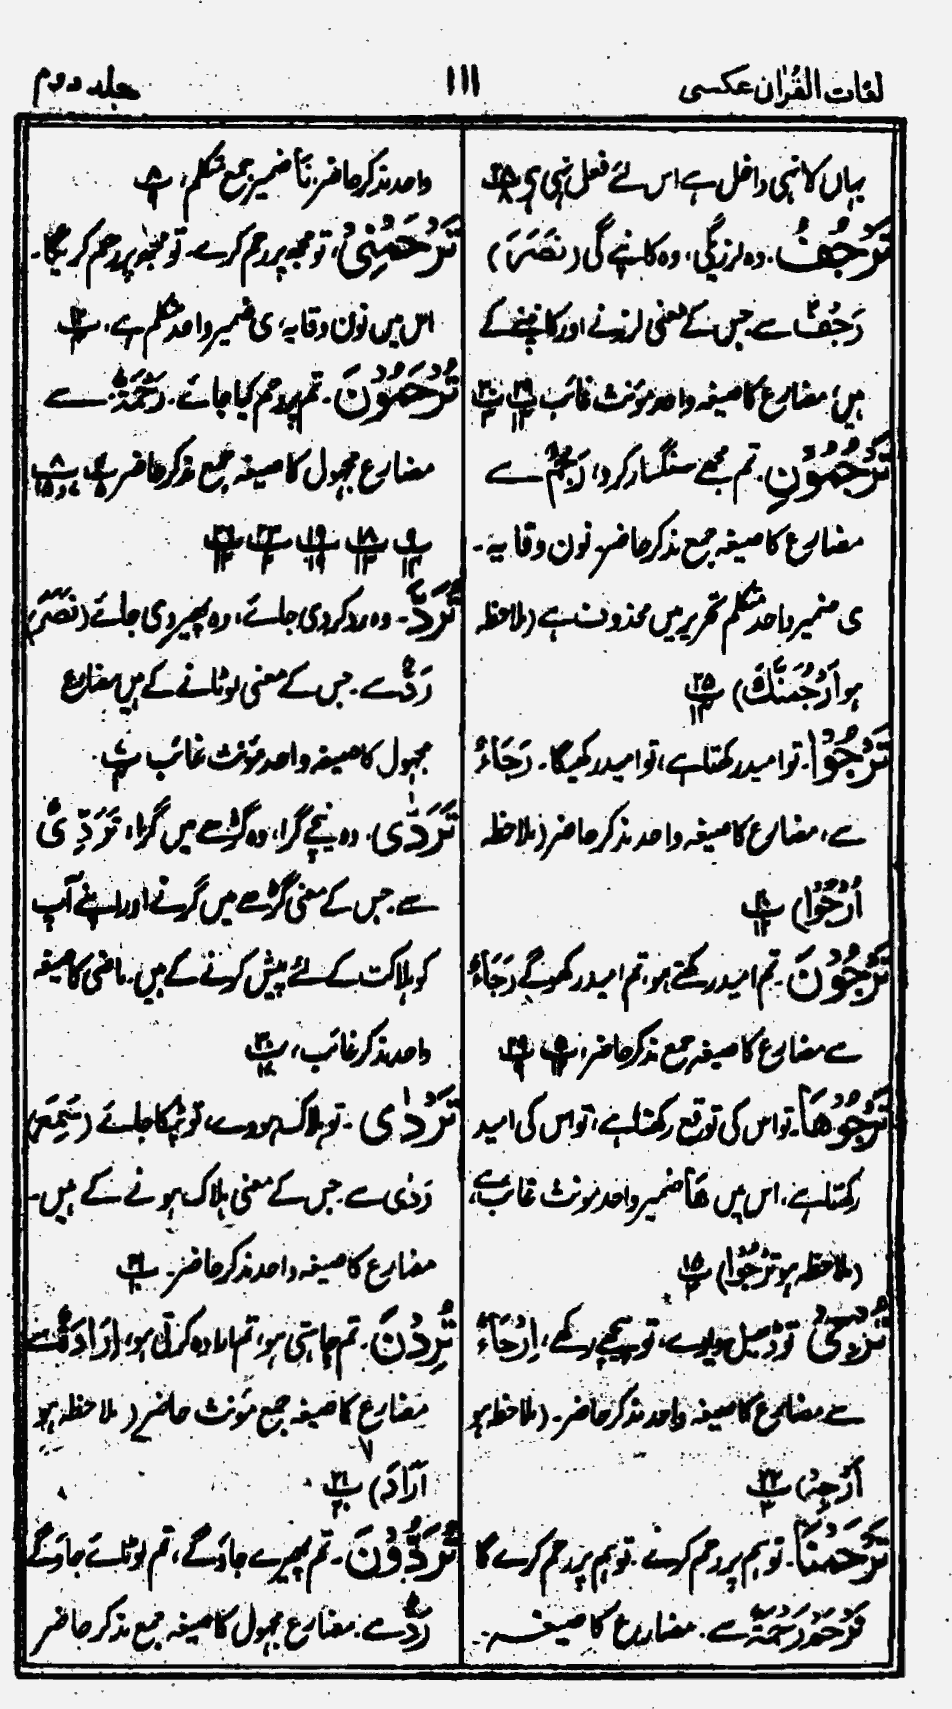 لغات القرآن عکسی
۱۱۱
جلد دوم
یہاں لا نہی داخل ہے اس لئے فعل نہی ہے
تَرْجُفُ۔ وہ لرزیگی، وہ کانپے گی (نَصَرَ)
رَجْفٌ سے جس کے معنی لرزنے اور کانپنے کے
ہیں، مضارع کا صیغہ واحد مؤنث غائب
تَرْجُمُوْنِ۔ تم مجھے سنگسار کردو، رَجْمٌ سے
مضارع کا صیغہ جمع مذکر حاضر۔ نون وقایہ۔
ی ضمیر واحد متکلم تحریر میں محذوف ہے (ملاحظہ
ہو اَرْجُمَنَّكَ) ۲۵
تَرْجُوْا۔ تو امید رکھتا ہے، تو امید رکھیگا۔ رَجَاءٌ
سے، مضارع کا صیغہ واحد مذکر حاضر (ملاحظہ
اُرْجُوْا)
تَرْجُوْنَ۔ تم امید رکھتے ہو، تم امید رکھوگے رَجَاءٌ
سے مضارع کا صیغہ جمع مذکر حاضر،
تَرْجُوْهَا۔ تو اس کی توقع رکھتا ہے، تو اس کی امید
رکھتا ہے، اس میں ھَا ضمیر واحد مونث غائب ہے،
(ملاحظہ ہو تَرْجُوْا) ۱۵
تُرْجِیْ تو ڈھیل دیوے، تو پیچھے رکھے، اِرْجَاءٌ
سے مضارع کا صیغہ واحد مذکر حاضر۔ (ملاحظہ ہو
اَرْجِهْ) ۲۲
تَرْحَمْنَا۔ تو ہم پر رحم کرے۔ تو ہم پر رحم کرے گا
رَحْمَةٌ سے۔ مضارع کا صیغہ۔
واحد مذکر حاضر، نَا ضمیر جمع متکلم،
تَرْحَمْنِیْ، تو مجھ پر رحم کرے۔ تو مجھ پر رحم کریگا۔
اس میں نون وقایہ، ی ضمیر واحد متکلم ہے، ۱۲
تُرْحَمُوْنَ۔ تم پر رحم کیا جائے۔ رَحْمَةٌ سے
مضارع مجہول کا صیغہ جمع مذکر حاضر
۹ ۱۸ ۱۹ ۲۳ ۲۶
تُرَدَّ۔ وہ رد کردی جائے، وہ پھیر دی جائے (نَصَرَ)
رَدٌّ سے۔ جس کے معنی لوٹانے کے ہیں مضارع
مجہول کا صیغہ واحد مؤنث غائب
تَرَدّٰی۔ وہ نیچے گرا، وہ گڑھے میں گرا، تَرَدِّیٌ
سے۔ جس کے معنی گڑھے میں گرنے اور اپنے آپ
کو ہلاکت کے لئے پیش کرنے کے ہیں۔ ماضی کا صیغہ
واحد مذکر غائب، ۳۰
تَرْدٰی۔ تو ہلاک ہووے، تو پٹکا جائے (سَمِعَ)
رَدٰی سے۔ جس کے معنی ہلاک ہونے کے ہیں۔
مضارع کا صیغہ واحد مذکر حاضر۔
تُرِدْنَ۔ تم چاہتی ہو، تم ارادہ کرتی ہو، اِرَادَةٌ سے
مضارع کا صیغہ جمع مؤنث حاضر (ملاحظہ ہو
اَرَادَ) ۲۱
تُرَدُّوْنَ۔ تم پھیرے جاؤگے، تم لوٹائے جاؤگے
رَدٌّ سے۔ مضارع مجہول کا صیغہ جمع مذکر حاضر